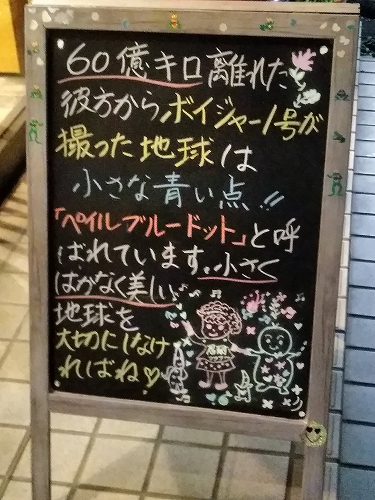 60億キロ離れた
彼方からボイジャー1号が
撮った地球は
小さな青い点!!
「ペイルブルードット」と呼
ばれています。小さく
はかなく美しい
地球を
大切にしなけ
ればね♡